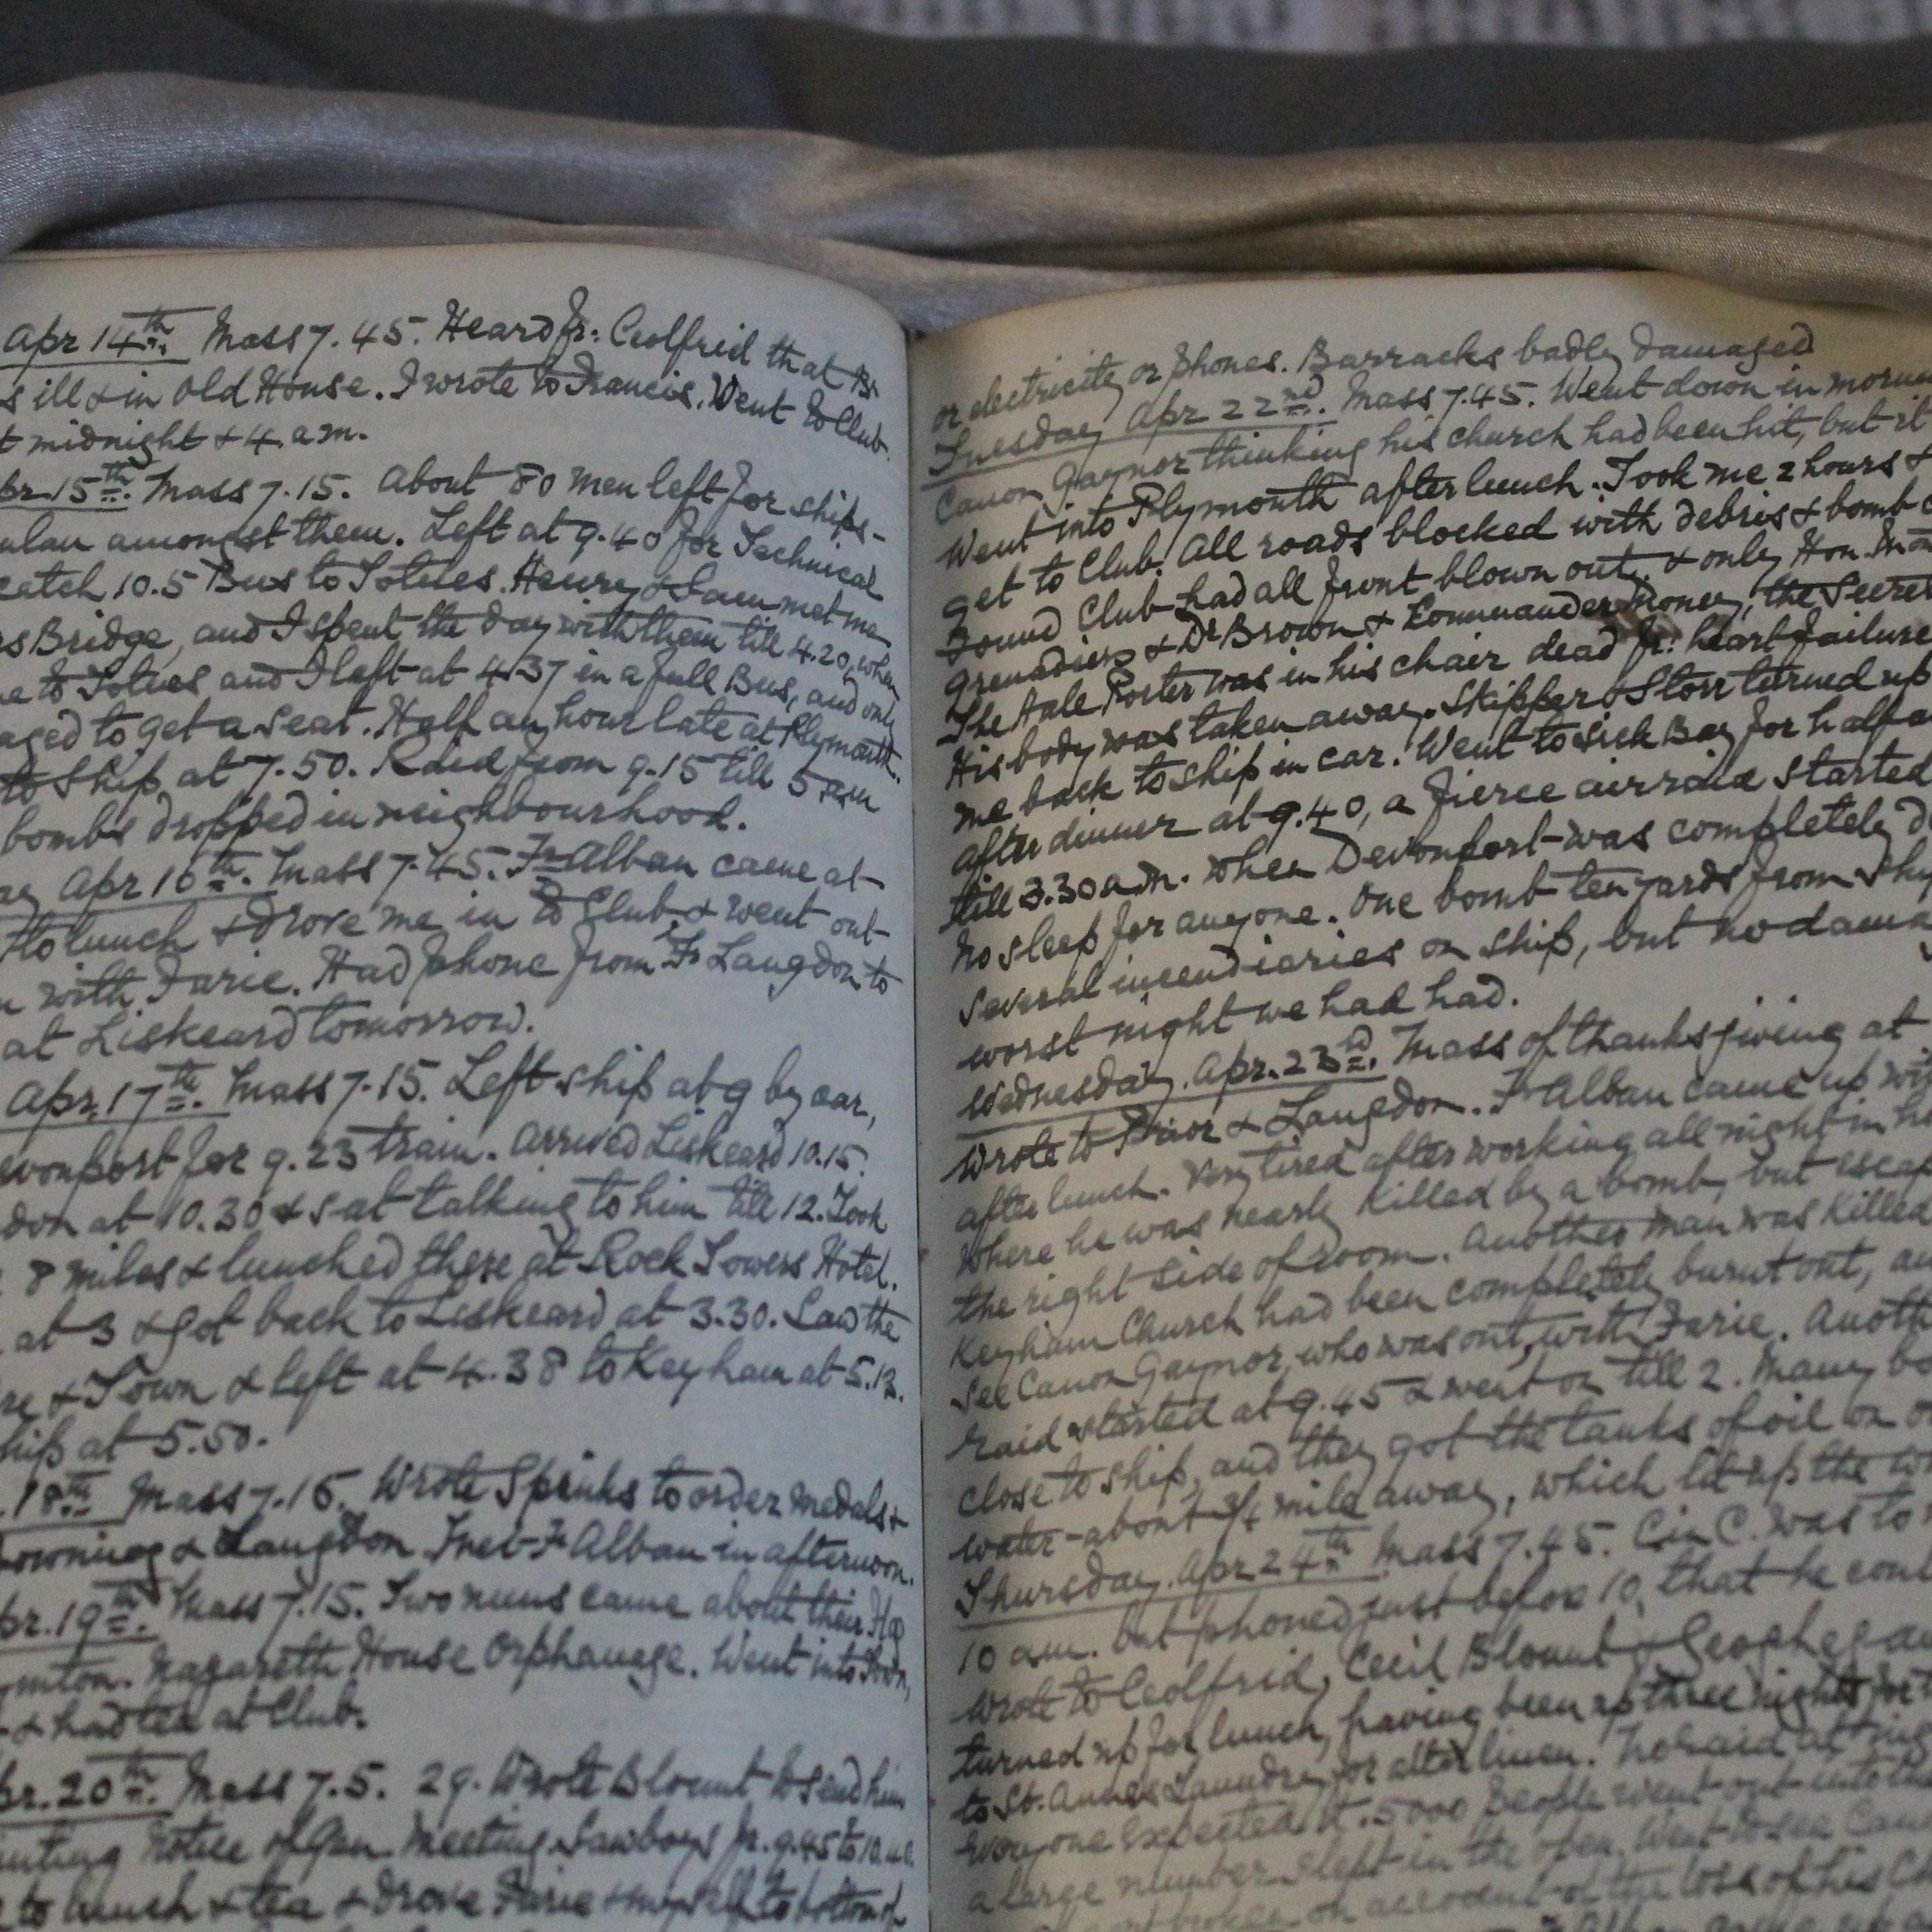 Apr 14th. Mass 7.45. Heard fr: Ceolfrid that Br
s ill & in Old House. I wrote to Francis. Went to Club.
t midnight & 4. a.m.
pr. 15th. Mass 7.15. About 80 men left for ships-
ulau amongst them. Left at 9.40 for Technical
catch 10.5 Bus to Totnes. Henry & Sam met me
s Bridge, and I spent the day with them till 4.20, when
e to Totnes and I left at 4.37 in a full Bus, and only
aged to get a seat. Half an hour late at Plymouth.
to Ship at 7.50. Raid from 9.15 till 5 am
bombs dropped in neighbourhood.
Apr 16th. Mass 7.45. Fr Alban came at
to lunch & drove me in to Club, & went out
with Farie. Had phone from Fr Langdon to
at Liskeard tomorrow.
Apr. 17th. Mass 7.15. Left ship at 9 by car,
evonport for 9.23 train. Arrived Liskeard 10.15.
don at 10.30 & sat talking to him till 12. Took
8 miles & lunched there at Rock Towers Hotel.
at 3 & got back to Liskeard at 3.30. Saw the
re & Town & left at 4.38 to Keyham at 5.12.
hip at 5.50.
18th Mass 7.15. Wrote Spinks to order medals &
owning & Langdon. Met Fr Alban in afternoon.
pr. 19th. Mass 7.15. Two nuns came about their
mton. Nazareth House Orphanage. Went into Town,
& had tea at Club.
pr. 20th. Mass 7.5. 29. Wrote Blount to send him
unting Notice of Gen Meeting. Sawboys fr. 9.45 to 10.40.
to lunch & tea & drove Farie & myself to bottom of
or electricity or phones. Barracks badly damaged
Tuesday Apr 22nd. Mass 7.45. Went down in morn
Canon Gaynor thinking his church had been hit, but it
Went into Plymouth after lunch. Took me 2 hours &
get to Club. All roads blocked with debris & bomb
Sound Club had all front blown out, & only Hon.
Grenadiers & Dr Brown & Commander Money, the Secret
The Hale Porter was in his chair dead fr: heart failure
His body was taken away. Skipper & Storr turned up
me back to ship in car. Went to Sick Bay for half a
after dinner at 9.40, a fierce air raid started
till 3.30 a.m. when Devonport was completely d
No sleep for anyone. One bomb ten yards from ship
several incendiaries on ship, but no dama
worst night we had had.
Wednesday. Apr. 23rd. Mass of thanksgiving at
Wrote to Prior & Langdon. Fr Alban came up wit
after lunch. Very tired after working all night in h
where he was nearly killed by a bomb, but escap
the right side of room. Another man was killed
Keyham Church had been completely burnt out, a
see Canon Gaynor, who was out, with Farie. Anoth
raid started at 9.45 & went on till 2. Many bo
close to ship, and they got the tanks of oil on o
water - about 3/4 mile away, which lit up the w
Thursday. Apr 24th Mass 7.45. C in C. was to
10 am. but phoned just before 10, that he coul
Wrote to Ceolfrid, Cecil Blount & Geoghegan
turned up for lunch, having been up three nights for
to St. Annes Laundry for altar linen. No raid at nig
everyone expected it. 5000 people went out into the
a large number slept in the open. Went to see Can
broken on account of the loss of his C